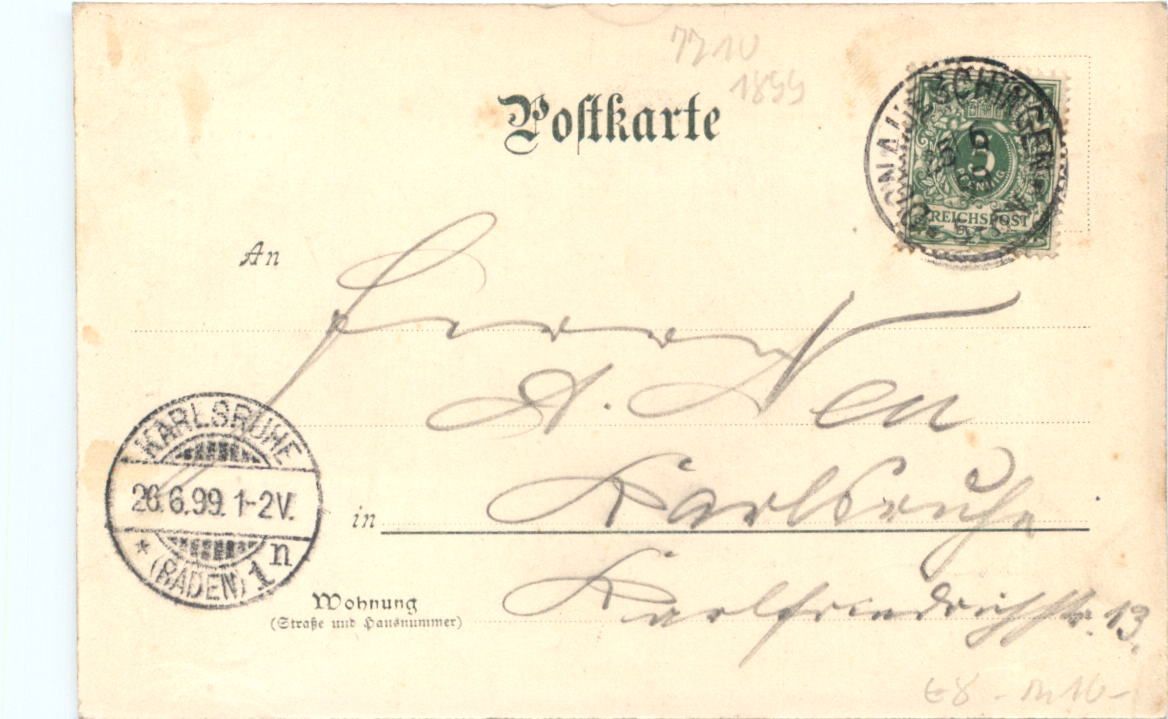 7710
1899
Postkarte
DONAUESCHINGEN
5
PFENNIG
REICHSPOST
An
Herrn
A. Neu
KARLSRUHE
26.6.99. 1-2V.
* (BADEN) 1n
in Karlsruhe
Wohnung
(Straße und Hausnummer)
Karlfriedrichstr. 13.